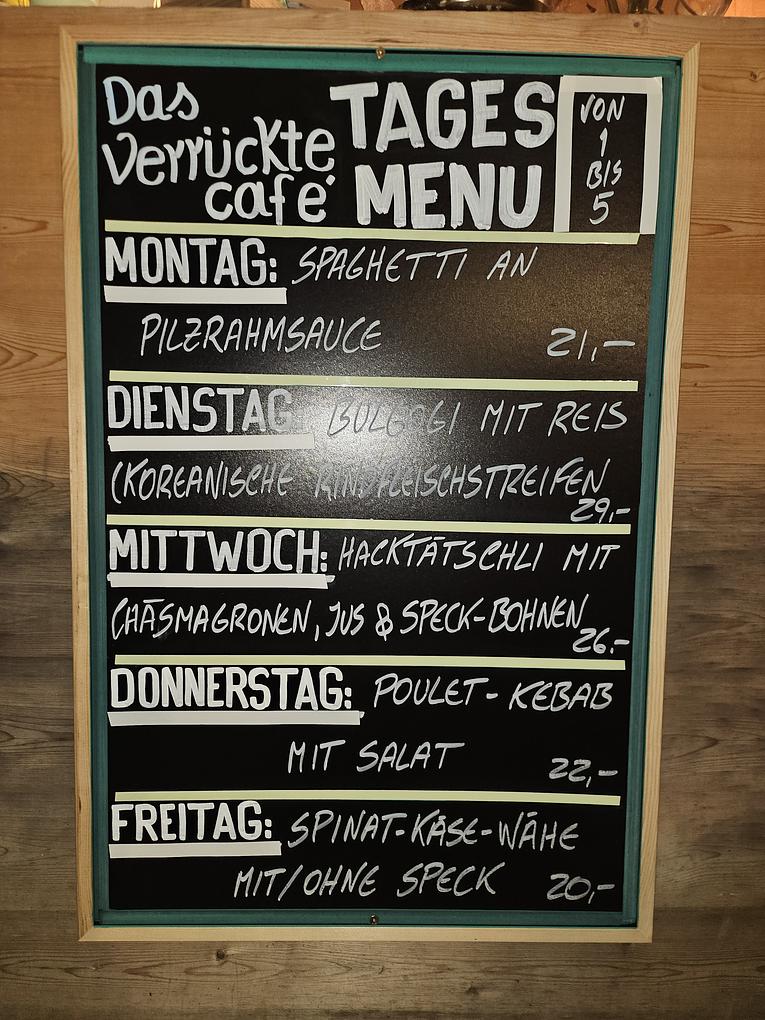 Das verrückte café
TAGES MENU
VON 1 BIS 5
MONTAG: SPAGHETTI AN
PILZRAHMSAUCE 21,-
DIENSTAG: BULGOGI MIT REIS
(KOREANISCHE RINDFLEISCHSTREIFEN
29,-
MITTWOCH: HACKTÄTSCHLI MIT
CHÄSMAGRONEN, JUS & SPECK-BOHNEN
26.-
DONNERSTAG: POULET-KEBAB
MIT SALAT 22,-
FREITAG: SPINAT-KÄSE-WÄHE
MIT/OHNE SPECK 20,-